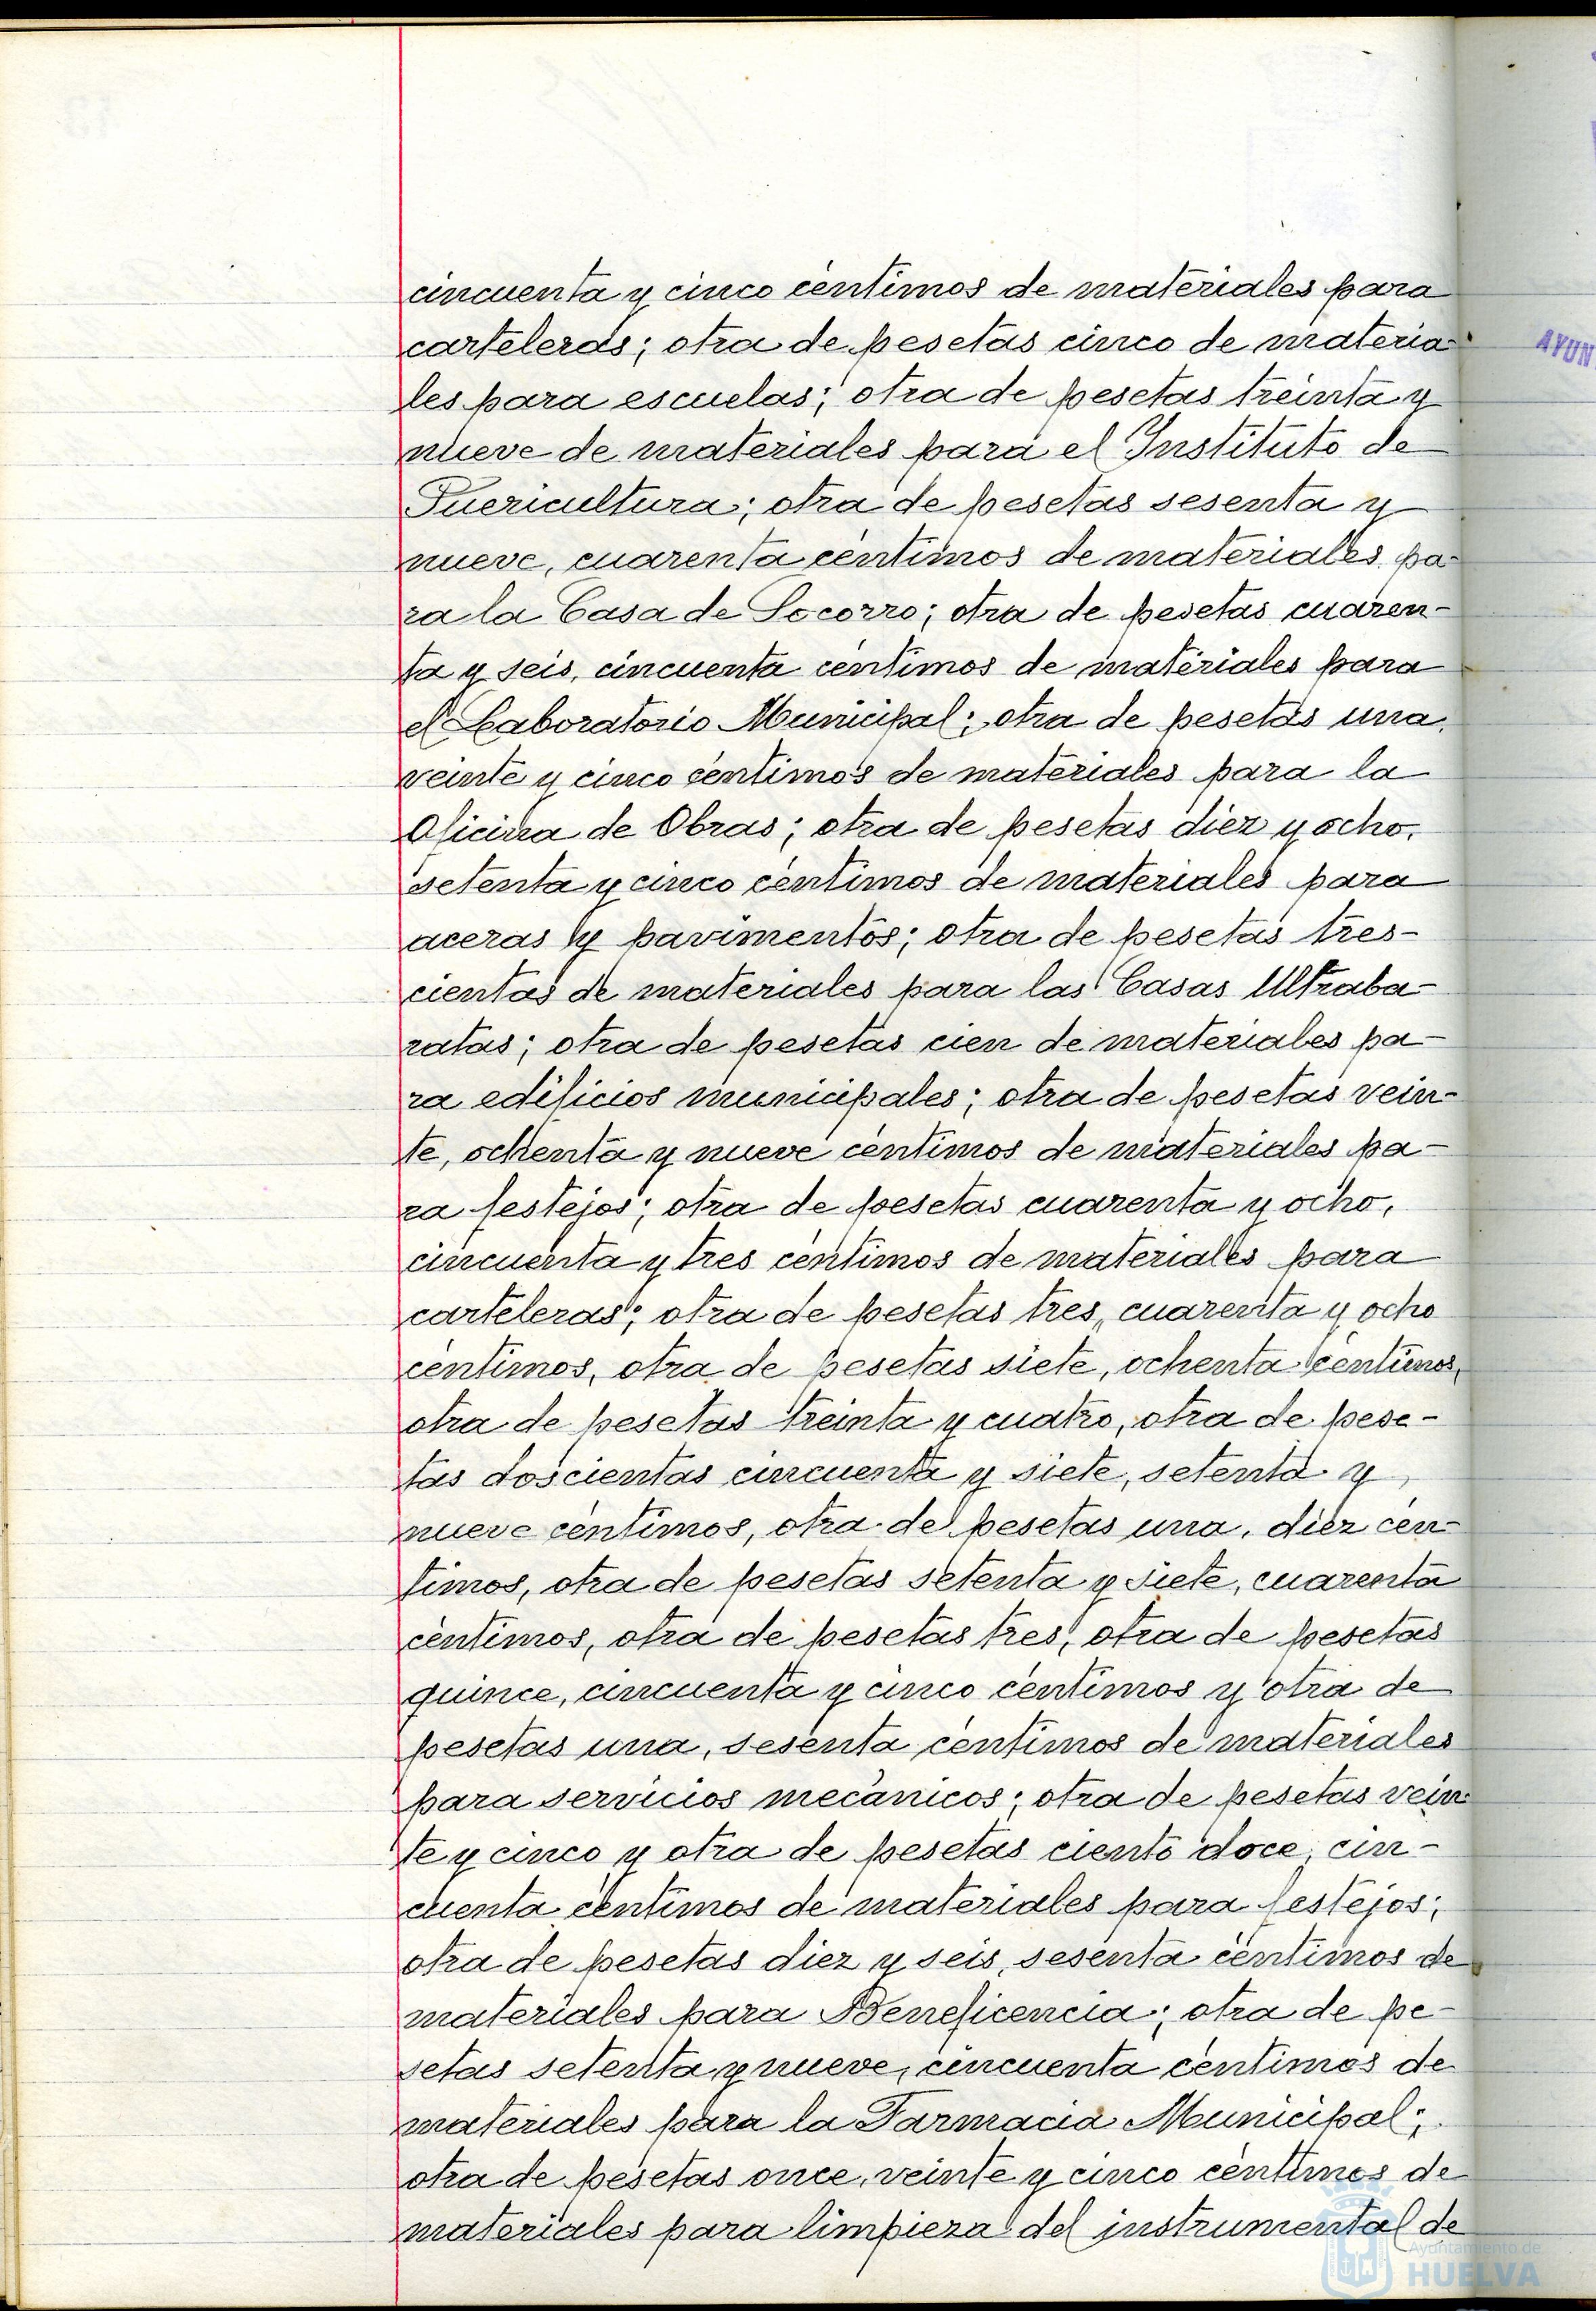 cincuenta y cinco centimos de materiales para
carteleras; otra de pesetas cinco de materia
les para escuelas; otra de pesetas treinta y
nueve de materiales para el Instituto de
Puericultura; otra de pesetas sesenta y
nueve, cuarenta centimos de materiales pa-
ra la Casa de Socorro; otra de pesetas cuaren-
ta y seis, cincuenta centimos de materiales para
el Laboratorio Municipal; otra de pesetas una,
veinte y cinco centimos de materiales para la
Oficina de Obras; otra de pesetas diez y ocho,
setenta y cinco centimos de materiales para
aceras y pavimentos; otra de pesetas tres-
cientas de materiales para las Casas Ultraba-
ratas; otra de pesetas cien de materiales pa-
ra edificios municipales; otra de pesetas vein-
te, ochenta y nueve centimos de materiales pa-
ra festejos; otra de pesetas cuarenta y ocho,
cincuenta y tres centimos de materiales para
carteleras; otra de pesetas tres, cuarenta y ocho
centimos, otra de pesetas siete, ochenta centimos,
otra de pesetas treinta y cuatro, otra de pese-
tas doscientas cincuenta y siete, setenta y
nueve centimos, otra de pesetas una, diez cen-
timos, otra de pesetas setenta y siete, cuarenta
centimos, otra de pesetas tres, otra de pesetas
quince, cincuenta y cinco centimos y otra de
pesetas una, sesenta centimos de materiales
para servicios mecánicos; otra de pesetas vein
te y cinco y otra de pesetas ciento doce, cin-
cuenta centimos de materiales para festejos;
otra de pesetas diez y seis, sesenta centimos de
materiales para Beneficencia; otra de pe-
setas setenta y nueve, cincuenta centimos de
materiales para la Farmacia Municipal;
otra de pesetas once, veinte y cinco centimos de
materiales para limpieza del instrumental de
AYUN
Ayuntamiento de
HUELVA